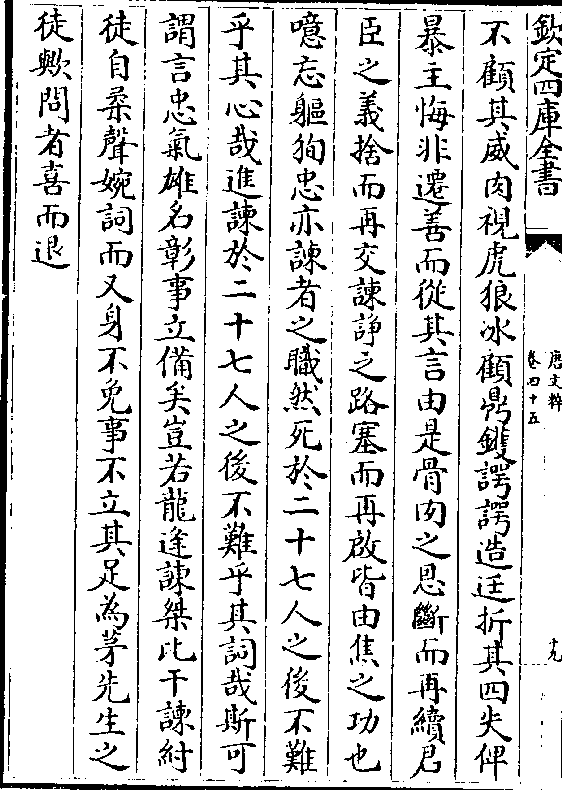 欽定四庫全書
唐文粹
卷四十五
十九
不顧其威肉視虎狼冰顧鼎鑊諤諤造廷折其四失俾
暴主悔非遷善而從其言由是骨肉之恩斷而再續君
臣之義捨而再交諫諍之路塞而再啟皆由焦之功也
噫忘軀狥忠亦諫者之職然死於二十七人之後不難
乎其心哉進諫於二十七人之後不難乎其詞哉斯可
謂言忠氣雄名彰事立備矣豈若龍逄諫桀比干諫紂
徒自柔聲婉詞而又身不免事不立其足為茅先生之
徒歟問者喜而退